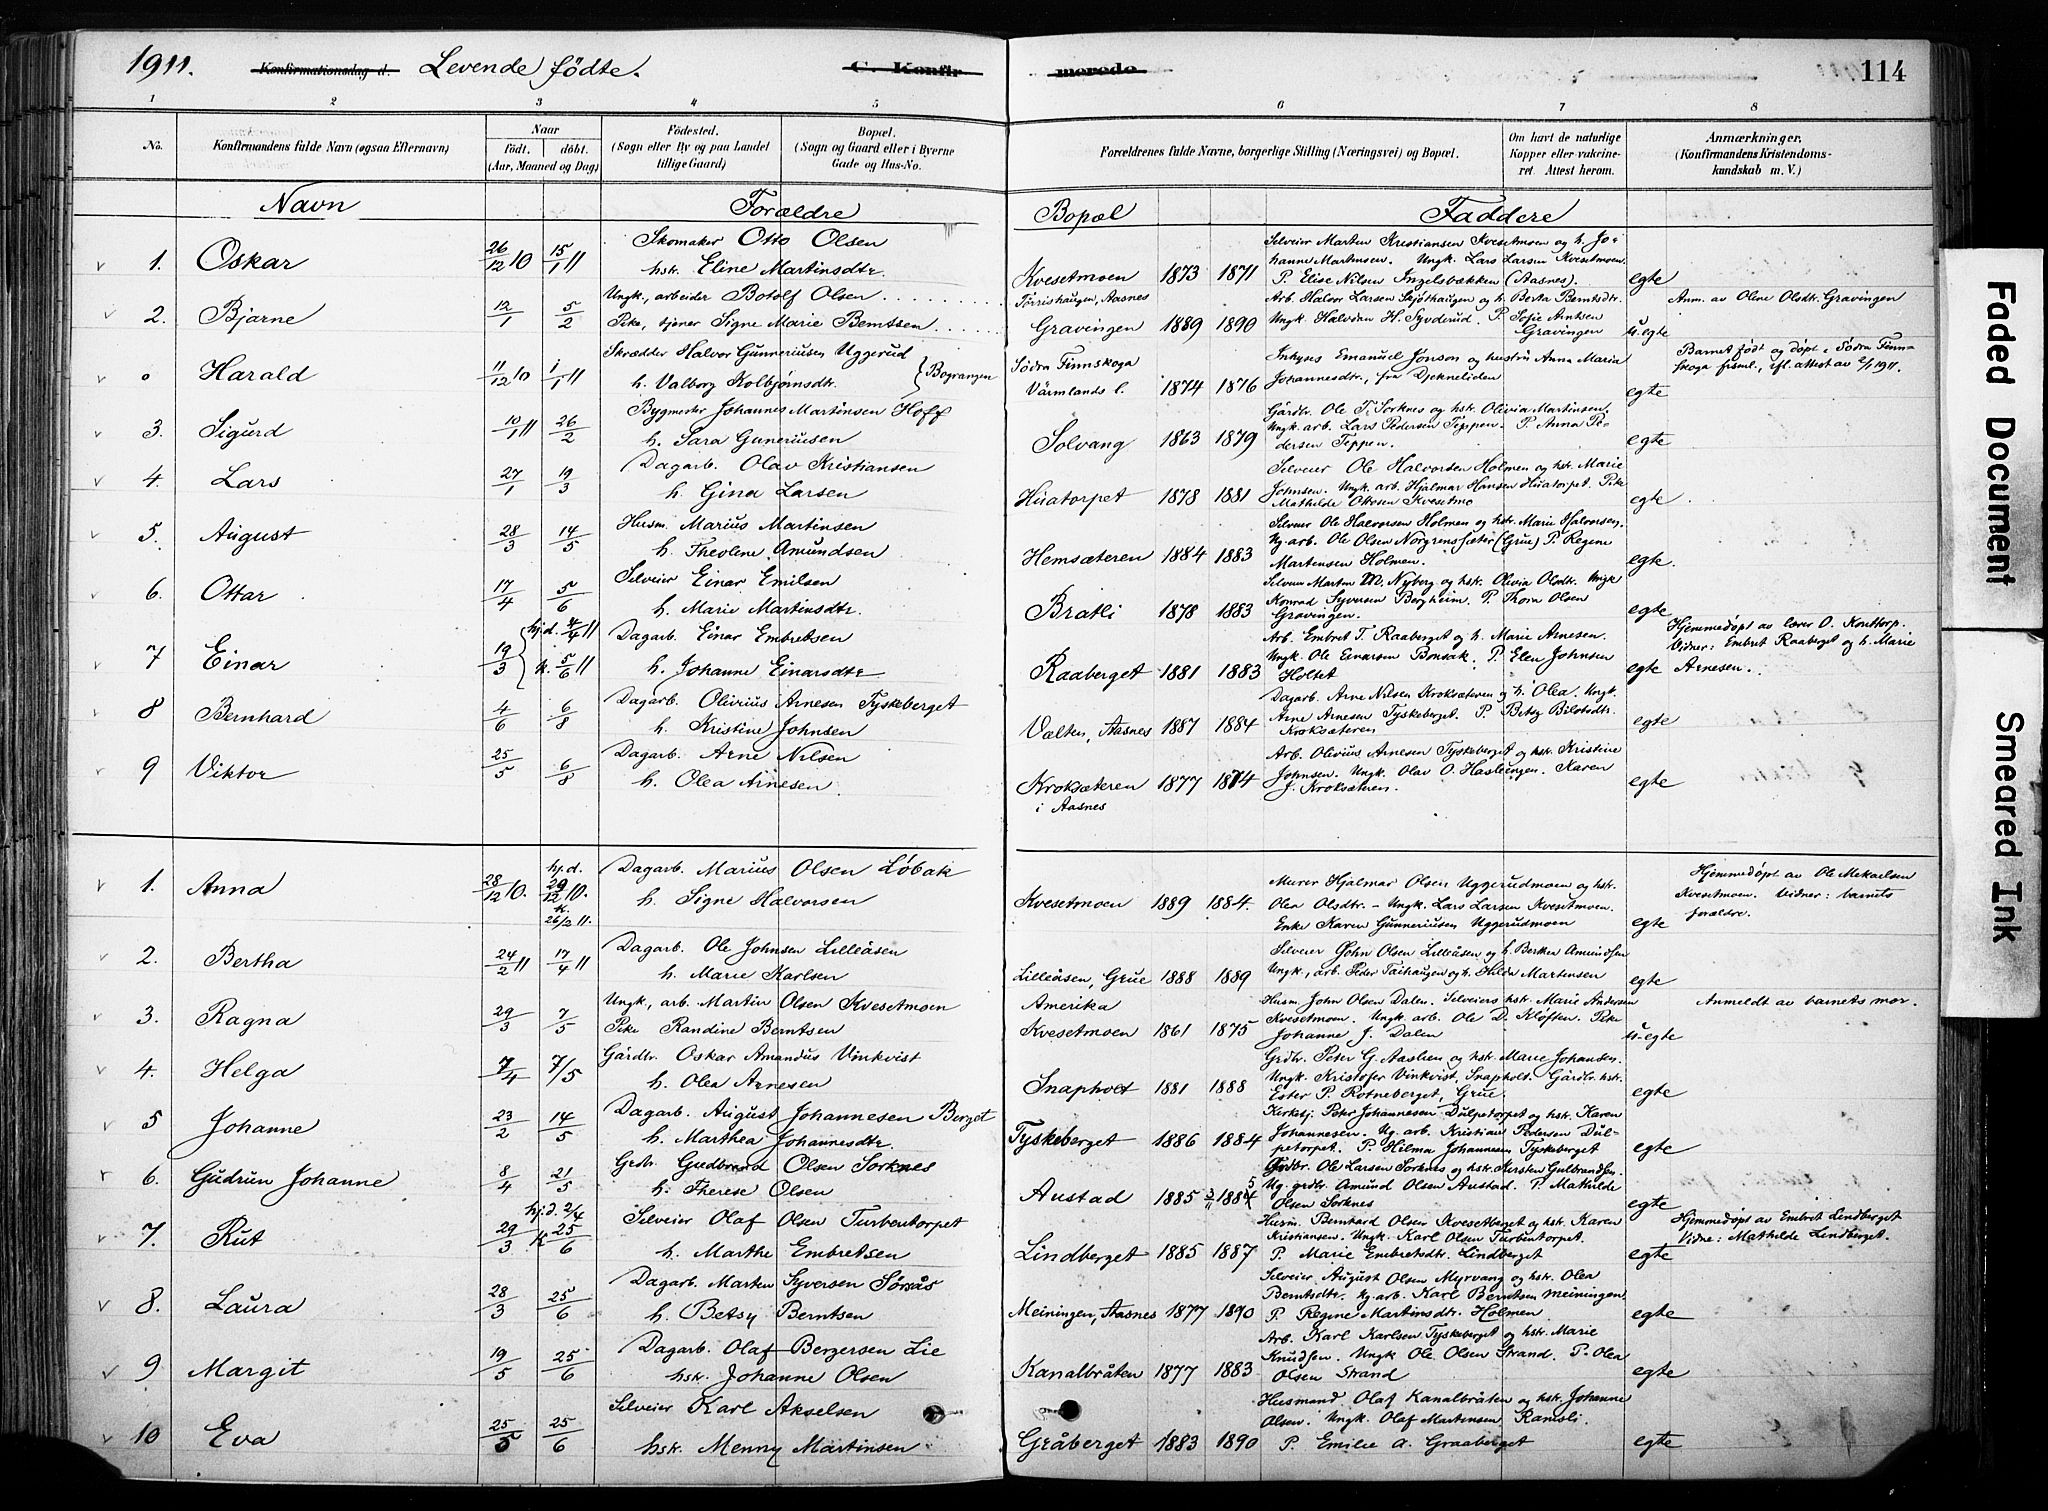 1911. Konfirmationsdag d. Levende fødte. C. Konfirmerede 114
1 2 3 4 5 6 7 8
No. Konfirmandens fulde Navn (ogsaa Efternavn) Naar født. døbt. (Aar, Maaned og Dag) Fødested. (Sogn eller By og paa Landet tillige Gaard) Bopæl. (Sogn og Gaard eller i Byerne Gade og Hus-No. Forældrenes fulde Navne, borgerlige Stilling (Næringsvei) og Bopæl. Om havt de naturlige Kopper eller vakcineret. Attest herom. Anmærkninger, (Konfirmandens Kristendomskundskab m. V.)
Navn Forældre Bopæl Faddere
1. Oskar 26/12 10 15/1 11 Skomaker Otto Olsen
hstr. Eline Martinsdtr. Kvesetmoen 1873 1871 egte
Selveier Marten Kristiansen Kvesetmoen og h. Johanne Martensen. Ungk. Lars Larsen Kvesetmoen.
P. Elise Nilsen Ingelsbækken (Aasnes).
2. Bjarne 12/1 5/2 Ungk., arbeider Botolf Olsen Tørrishaugen, Aasnes
Pike, tjener Signe Marie Berntsen Gravingen 1889 1890 u.egte
Arb. Halvor Larsen Sjøthaugen og h. Berta Berntsdtr.
Ungk. Halvdan H. Syverud. P. Sofie Arntsen Gravingen
Anm. av Oline Olsdtr. Gravingen
o Harald 11/12 10 1/1 11 Skrædder Halvor Gunneriusen Uggerud
h. Valborg Kolbjørnsdtr. } Bograngen Södra Finnskoga Värmlands l. 1874 1876 egte
Inhyses Emanuel Jonson og hustru Anna Maria
Johannesdtr., fra Djekneliden
Barnet født og døpt i Södra Finnskoga fisml., ifl. attest av 2/1 1911.
3. Sigurd 10/1 11 26/2 Bygmester Johannes Martinsen Hoff
h. Sara Guneriusen Solvang 1863 1879 egte
Gårdbr. Ole T. Sorknes og hstr. Olivia Martinsen.
Ungk. arb. Lars Pedersen Teppen. P. Anna Pedersen Teppen.
4. Lars 27/1 19/3 Dagarb. Olav Kristiansen
h. Gina Larsen Huatorpet 1878 1881 egte
Selveier Ole Halvorsen Holmen og hstr. Marie
Johnsen. Ungk. arb. Hjalmar Hansen Huatorpet. Pike
Mathilde Ottosen Kvesetmo
5. August 28/3 14/5 Husm. Marius Martinsen
h. Theoline Amundsen Hemsæteren 1884 1883 egte
Selveier Ole Halvorsen Holmen og hstr. Marie Halvorsen.
Ug. arb. Ole Olsen Norgrenssæter (Grue) P. Regine
Martensen Holmen.
6. Ottar 17/4 5/6 Selveier Einar Emilsen
h. Marie Martinsdtr. Bratli 1878 1883 egte
Selveier Marten M. Nyberg og hstr. Olivia Olsdtr. Ungk
Konrad Syversen Bergheim. P. Thora Olsen
Gravingen.
7 Einar 19/3 hj.d. 4/4 11 k. 5/6 11 Dagarb. Einar Embretsen
h. Johanne Einarsdtr Raaberget 1881 1883 egte
Arb. Embret T. Raaberget og h. Marie Arnesen.
Ungk. Ole Einarsen Bonsak. P. Elen Johnsen
Holtet
Hjemmedøpt av lærer O. Konttorp.
Vidner: Embret Raaberget og h. Marie
Arnesen.
8 Bernhard 4/6 6/8 Dagarb. Olivius Arnesen Tyskeberget
h. Kristine Johnsen Vælten, Aasnes 1887 1884 egte
Dagarb. Arne Nilsen Kroksæteren og h. Olea. Ungk.
Arne Arnesen Tyskeberget. P. Betsy
Kroksæteren
9 Viktor 25/5 6/8 Dagarb. Arne Nilsen
h. Olea Arnesen Kroksæteren i Aasnes 1877 1874 egte
Arb. Olivius Arnesen Tyskeberget og hstr. Kristine
Johnsen. Ungk. Olav O. Hasleengen. Karen
J. Kroksæteren.
1. Anna 28/12 10. hj.d. 29/12 10. k. 26/2 11. Dagarb. Marius Olsen Løbak
h. Signe Halvorsen Kvesetmoen 1889 1884. egte
Murer Hjalmar Olsen Uggerudmoen og hstr.
Olea Olsdtr. – Ungk. Lars Larsen Kvesetmoen.
Enke Karen Gunneriusen Uggerudmoen
Hjemmedøpt av Ole Mekaelsen
Kvesetmoen. Vidner: barnets
forældre.
2. Bertha 24/2 11 17/4 11 Dagarb. Ole Johnsen Lilleåsen
h. Marie Karlsen Lilleåsen, Grue 1888 1889 egte
Selveier John Olsen Lilleåsen og h. Berthe Amundsen
Ungk., arb. Peder Taihaugen og h. Hilda Martensen
3. Ragna 29/3 7/5 Ungk., arb. Martin Olsen Kvesetmoen Amerika
Pike Randine Berntsen Kvesetmoen 1861 1875 u.egte
Husm. John Olsen Dalen. Selveiers hstr. Marie Andersen
Kvesetmoen. Ungk. arb. Ole D. Kløften. Pike
Johanne J. Dalen
Anmeldt av barnets mor.
4. Helga 7/4 7/5 Gårdbr. Oskar Amandus Vinkvist
h. Olea Arnesen Snapholt 1881 1888 egte
Grdbr. Peter G. Aaslien og hstr. Marie Johansen.
Ungk. Kristofer Vinkvist, Snapholt. Gårdbr. hstr.
Ester P. Rotneberget, Grue.
5 Johanne 23/2 14/5 Dagarb. August Johannesen Berget
h. Marthea Johannesdtr. Tyskeberget 1886 1884 egte
Kirketj. Peter Johannesen Dulpetorpet og hstr. Karen
Johannesen. Ug. arb. Kristian Pedersen Dulpetorpet. P. Hilma Johannesen Tyskeberget
6. Gudrun Johanne 8/4 21/5 Grdbr. Gudbrand Olsen Sorknes
h. Therese Olsen Austad 1885 3/11 1885 egte
Grdbr. Ole Larsen Sorknes og hstr. Kersten Gulbrandsen.
Ug. grdbr. Amund Olsen Austad. P. Mathilde
Olsen Sorknes
7. Rut 29/3 hj.d. 2/4 K 25/6 Selveier Olaf Olsen Turbentorpet
h. Marthe Embretsen Lindberget 1885 1887 egte
Husm. Bernhard Olsen Kvesetberget og hstr. Karen
Kristiansen. Ungk. Karl Olsen Turbentorpet.
P. Marie Embretsdtr. Lindberget
Hjemmedøpt av Embret Lindberget
Vidne: Mathilde Lindberget.
8. Laura 28/3 25/6 Dagarb. Marten Syversen Sørsås
h. Betsy Berntsen Meiningen, Aasnes 1877 1890 egte
Selveier August Olsen Myrvang og hstr. Olea
Berntsdtr. Ug. arb. Karl Berntsen Meiningen
P. Regine Martinsdtr. Holmen
9 Margit 19/5 25/6 Dagarb. Olaf Bergersen Lie
hstr. Johanne Olsen Kanalbråten 1877 1883 egte
Arb. Karl Karlsen Tyskeberget og hstr. Marie
Knudsen. Ungk Ole Olsen Strand. P. Olea
Olsen Strand
10 Eva 25/5 25/6 Selveier Karl Akselsen
hstr. Menny Martinsen Gråberget 1883 1890 egte
Husmand Olaf Kanalbråten og hstr. Johanne
Olsen. Ungk. Olaf Martensen Ramsli.
P. Emilie A. Graaberget
Faded Document
Smeared Ink